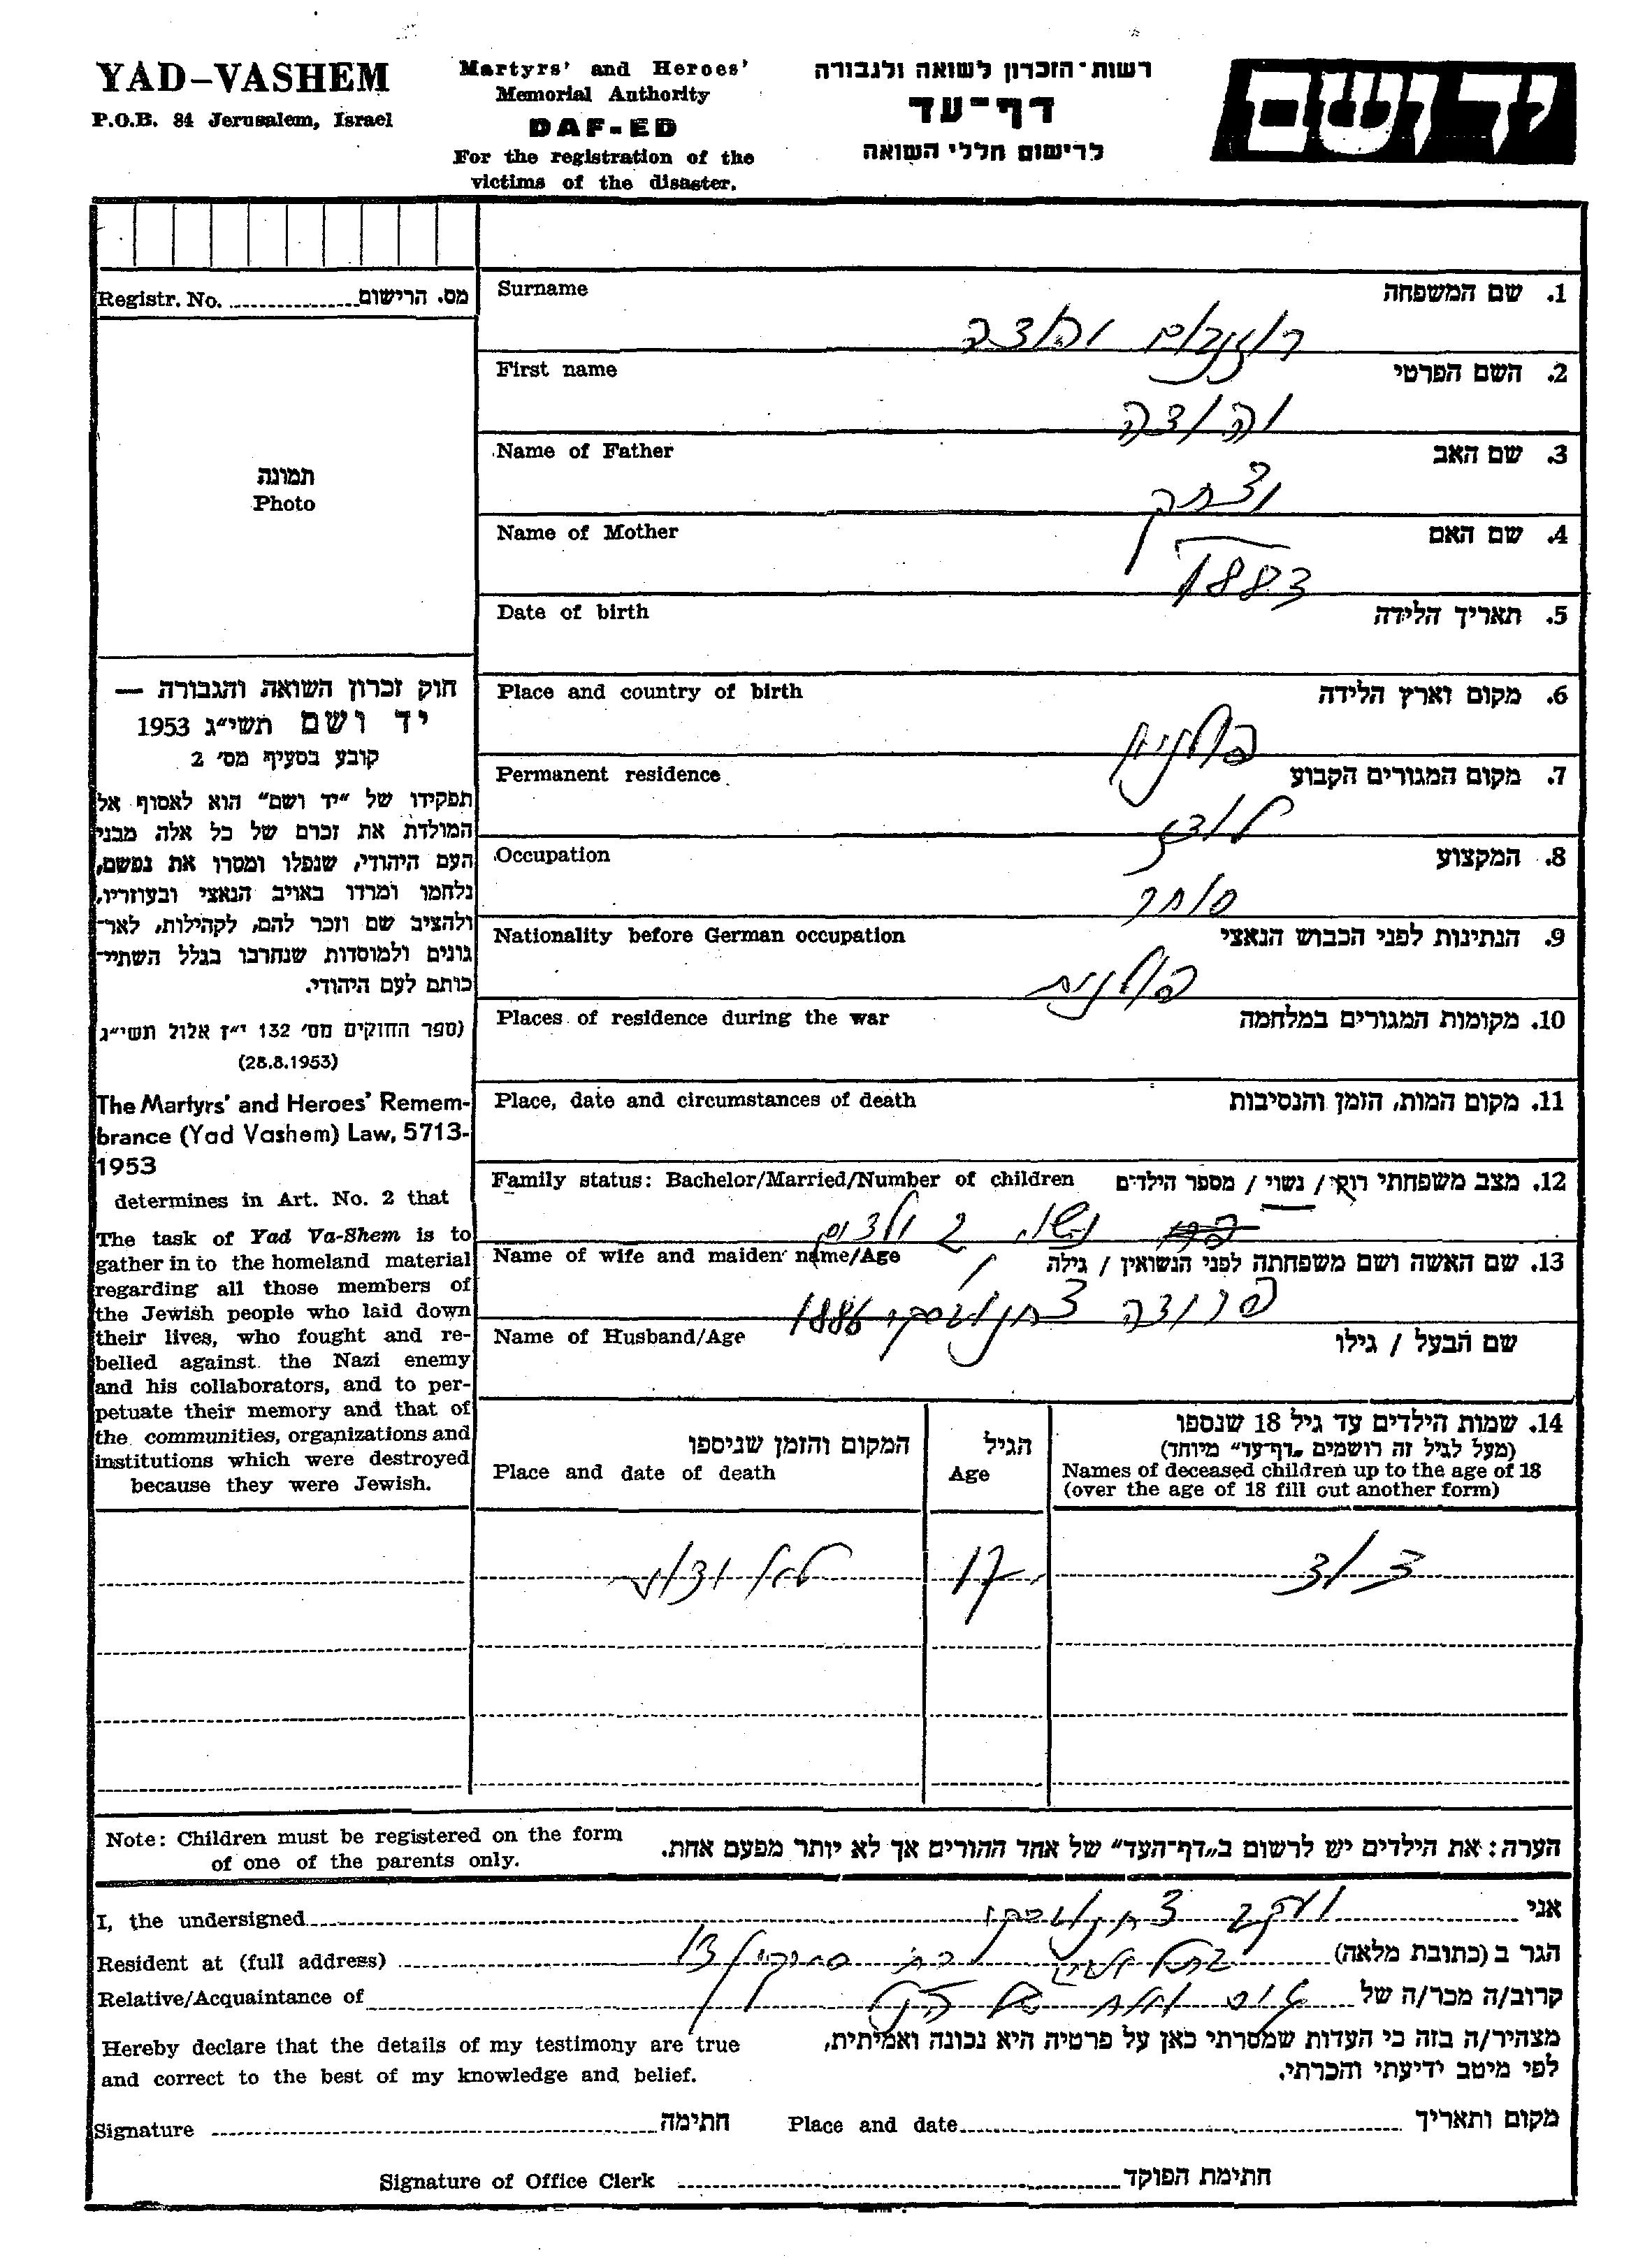 YAD-VASHEM
P.O.B. 84 Jerusalem, Israel
Martyrs' and Heroes'
Memorial Authority
DAF-ED
For the registration of the
victims of the disaster.
רשות-הזכרון לשואה ולגבורה
דף-עד
לרישום חללי השואה
יד ושם
Registr. No. מס. הרישום
תמונה
Photo
חוק זכרון השואה והגבורה —
יד ושם תשי״ג 1953
קובע בסעיף מס׳ 2
תפקידו של ״יד ושם״ הוא לאסוף אל
המולדת את זכרם של כל אלה מבני
העם היהודי, שנפלו ומסרו את נפשם,
נלחמו ומרדו באויב הנאצי ובעוזריו,
ולהציב שם וזכר להם, לקהילות, לאר-
גונים ולמוסדות שנחרבו בגלל השתיי-
כותם לעם היהודי.
(ספר החוקים מס׳ 132 י״ז אלול תשי״ג
(28.8.1953)
The Martyrs' and Heroes' Remem-
brance (Yad Vashem) Law, 5713-
1953
determines in Art. No. 2 that
The task of Yad Va-Shem is to
gather in to the homeland material
regarding all those members of
the Jewish people who laid down
their lives, who fought and re-
belled against the Nazi enemy
and his collaborators, and to per-
petuate their memory and that of
the communities, organizations and
institutions which were destroyed
because they were Jewish.
Surname 1. שם המשפחה
First name 2. השם הפרטי
יהודה
Name of Father 3. שם האב
יצחק
Name of Mother 4. שם האם
1883
Date of birth 5. תאריך הלידה
Place and country of birth 6. מקום וארץ הלידה
פולניה
Permanent residence 7. מקום המגורים הקבוע
לודז
Occupation 8. המקצוע
סוחר
Nationality before German occupation 9. הנתינות לפני הכבוש הנאצי
פולנית
Places of residence during the war 10. מקומות המגורים במלחמה
Place, date and circumstances of death 11. מקום המות, הזמן והנסיבות
Family status: Bachelor/Married/Number of children 12. מצב משפחתי רוק / נשוי / מספר הילדים
נשוי 2 ילדים
Name of wife and maiden name/Age 13. שם האשה ושם משפחתה לפני הנשואין / גילה
1886
Name of Husband/Age שם הבעל / גילו
14. שמות הילדים עד גיל 18 שנספו
(מעל לגיל זה רושמים „דף-עד״ מיוחד)
Names of deceased children up to the age of 18
(over the age of 18 fill out another form)
הגיל
Age
המקום והזמן שניספו
Place and date of death
דוד 17 לא ידוע
Note: Children must be registered on the form
of one of the parents only.
הערה: את הילדים יש לרשום ב„דף-העד״ של אחד ההורים אך לא יותר מפעם אחת.
I, the undersigned יעקב אני
Resident at (full address) 13 הגר ב (כתובת מלאה)
Relative/Acquaintance of קרוב/ה מכר/ה של
Hereby declare that the details of my testimony are true
and correct to the best of my knowledge and belief.
מצהיר/ה בזה כי העדות שמסרתי כאן על פרטיה היא נכונה ואמיתית,
לפי מיטב ידיעתי והכרתי.
Signature חתימה Place and date מקום ותאריך
Signature of Office Clerk חתימת הפוקד